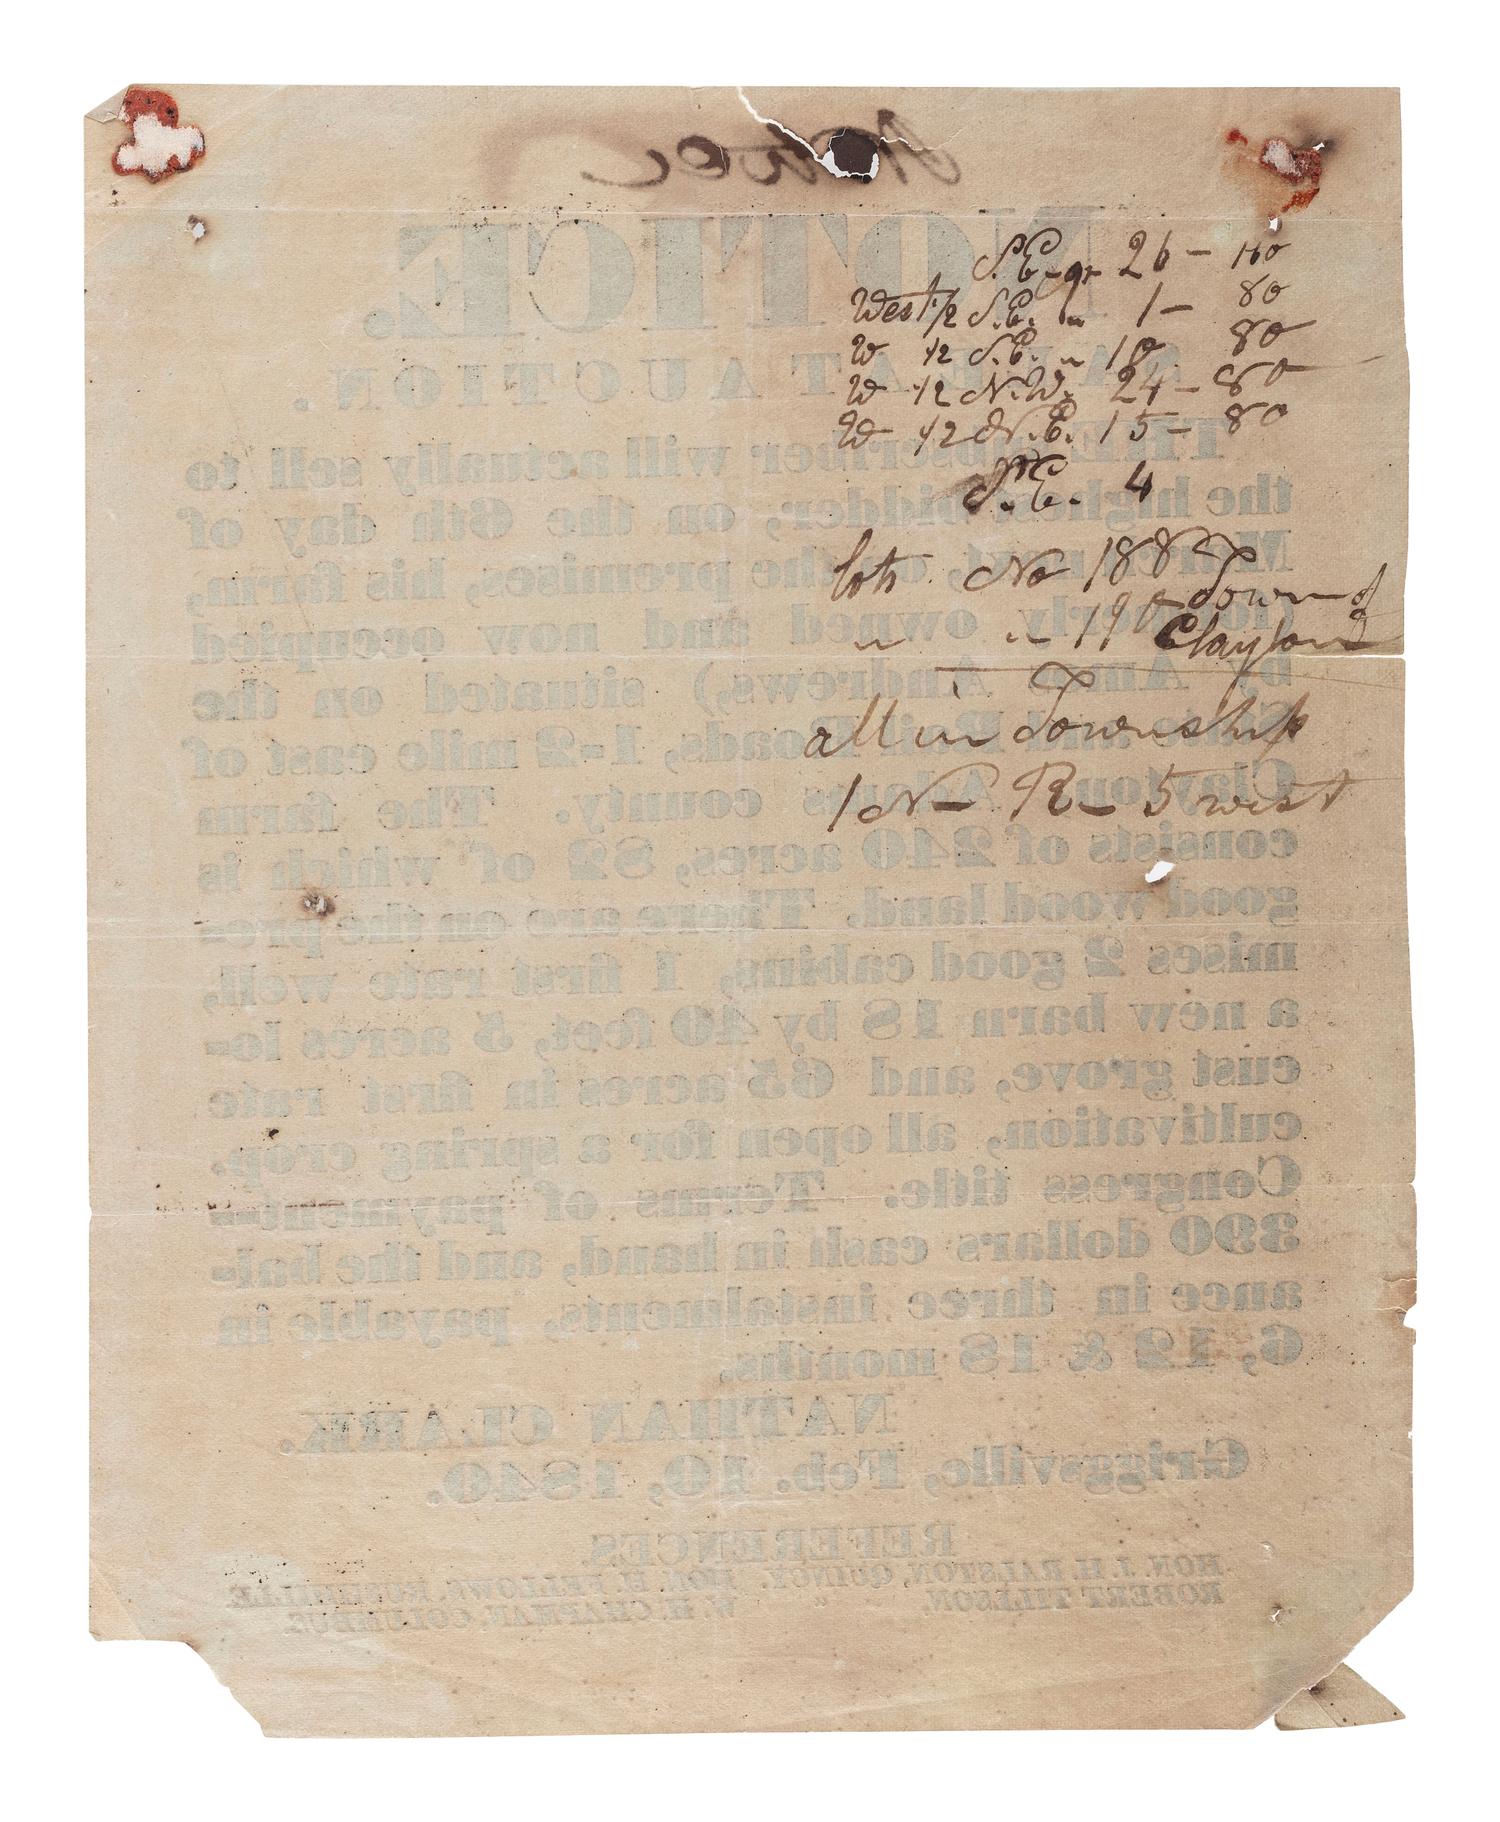 S.E. qr 26 – 160
West 1/2 S.E. " 1 – 80
W 1/2 S.E. " 10 80
W 1/2 N.W. 24 – 80
W 1/2 N.E. 15 – 80
S.E. 4
lots No 188 Town of
" " 190 Clayton
all in Township
1 N – R – 5 west
NOTICE.
SALE AT AUCTION.
THE subscriber will actually sell to
the highest bidder, on the 6th day of
March next, on the premises, his farm,
(formerly owned and now occupied
by Amos Andrews,) situated on the
State and Rail Roads, 1-2 mile east of
Clayton, Adams county. The farm
consists of 240 acres, 82 of which is
good wood land. There are on the pre-
mises 2 good cabins, 1 first rate well,
a new barn 18 by 40 feet, 5 acres lo-
cust grove, and 65 acres in first rate
cultivation, all open for a spring crop.
Congress title. Terms of payment-
390 dollars cash in hand, and the bal-
ance in three instalments, payable in
6, 12 & 18 months.
NATHAN CLARK.
Griggsville, Feb. 10, 1840.
REFERENCES.
HON. J. H. RALSTON, QUINCY. HON. H. FELLOWS, RUSHVILLE.
ROBERT TILLSON, " W. H. CHAPMAN, COLUMBUS.